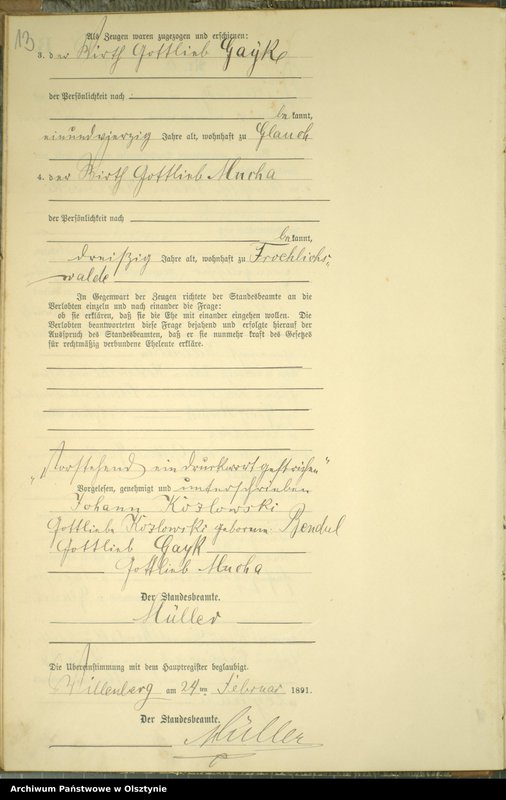 13
Als Zeugen waren zugezogen und erschienen:
3. der Wirth Gottlieb Gayk
der Persönlichkeit nach
be kannt,
einundvierzig Jahre alt, wohnhaft zu Glauch
4. der Wirth Gottlieb Mucha
der Persönlichkeit nach
be kannt,
dreißig Jahre alt, wohnhaft zu Froehlichs-
walde
In Gegenwart der Zeugen richtete der Standesbeamte an die
Verlobten einzeln und nach einander die Frage:
ob sie erklären, daß sie die Ehe mit einander eingehen wollen. Die
Verlobten beantworteten diese Frage bejahend und erfolgte hierauf der
Ausspruch des Standesbeamten, daß er sie nunmehr kraft des Gesetzes
für rechtmäßig verbundene Eheleute erkläre.
„Vorstehend ein Druckwort gestrichen"
Vorgelesen, genehmigt und unterschrieben
Johann Kozlowski
Gottliebe Kozlowski geborene Bendul
Gottlieb Gayk
Gottlieb Mucha
Der Standesbeamte.
Müller
Die Uebereinstimmung mit dem Hauptregister beglaubigt.
Willenberg am 24ten Februar 1891.
Der Standesbeamte.
Müller
Archiwum Państwowe w Olsztynie